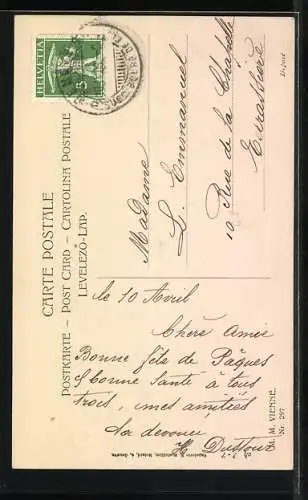 HELVETIA
CARTE POSTALE
POSTKARTE – POST CARD – CARTOLINA POSTALE
LEVELEZŐ-LAP.
Madame
L. Emmanuel
10 Rue de la Chapelle
le 10 Avril
Chère Amie
Bonne fête de Pâques
& bonne Santé à tous
trois, mes amitiés
M. M. VIENNE
Nr. 297